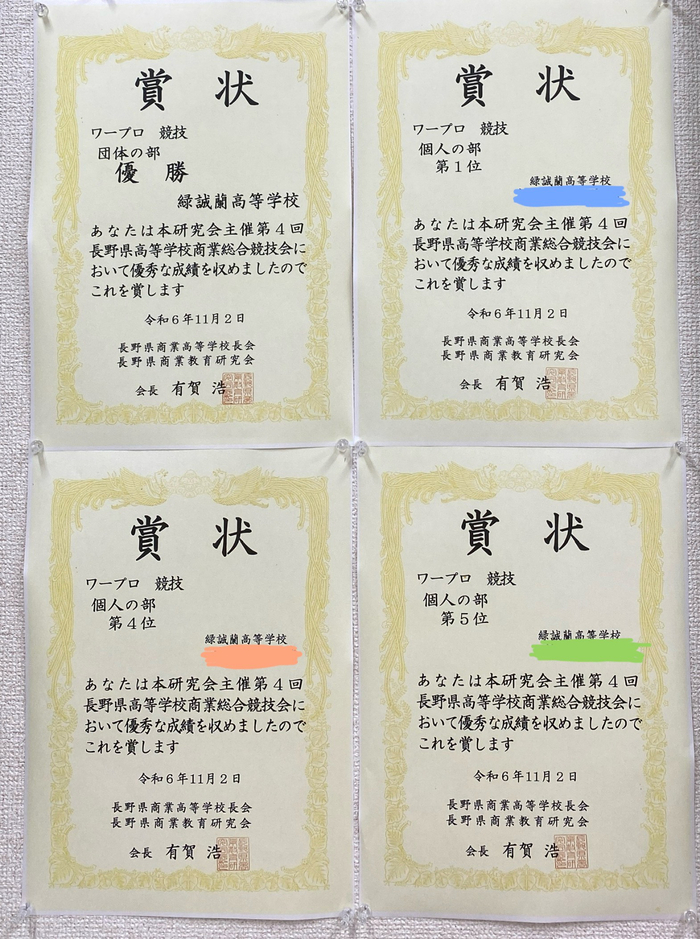 賞状
ワープロ 競技
団体の部
優勝
緑誠蘭高等学校
あなたは本研究会主催第4回
長野県高等学校商業総合競技会に
おいて優秀な成績を収めましたので
これを賞します
令和6年11月2日
長野県商業高等学校長会
長野県商業教育研究会
会長 有賀 浩
賞状
ワープロ 競技
個人の部
第1位
緑誠蘭高等学校
あなたは本研究会主催第4回
長野県高等学校商業総合競技会に
おいて優秀な成績を収めましたので
これを賞します
令和6年11月2日
長野県商業高等学校長会
長野県商業教育研究会
会長 有賀 浩
賞状
ワープロ 競技
個人の部
第4位
緑誠蘭高等学校
あなたは本研究会主催第4回
長野県高等学校商業総合競技会に
おいて優秀な成績を収めましたので
これを賞します
令和6年11月2日
長野県商業高等学校長会
長野県商業教育研究会
会長 有賀 浩
賞状
ワープロ 競技
個人の部
第5位
緑誠蘭高等学校
あなたは本研究会主催第4回
長野県高等学校商業総合競技会に
おいて優秀な成績を収めましたので
これを賞します
令和6年11月2日
長野県商業高等学校長会
長野県商業教育研究会
会長 有賀 浩